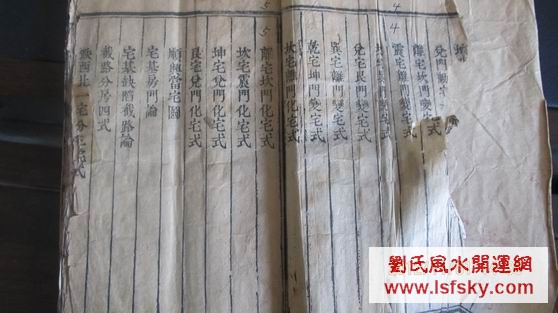 兌門
離宅坎門變宅式
震宅離門變宅式
門變宅式
兌宅艮門變宅式
巽宅離門變宅式
乾宅坤門變宅式
坎宅離門化宅式
離宅坎門化宅式
坎宅震門化宅式
坤宅兌門化宅式
艮宅兌門化宅式
順興當宅圖
宅墓房門論
宅墓缺陷截路論
截路分房四式
宅分
4
4
5
5
劉氏風水開運網
www.lsfsky.com